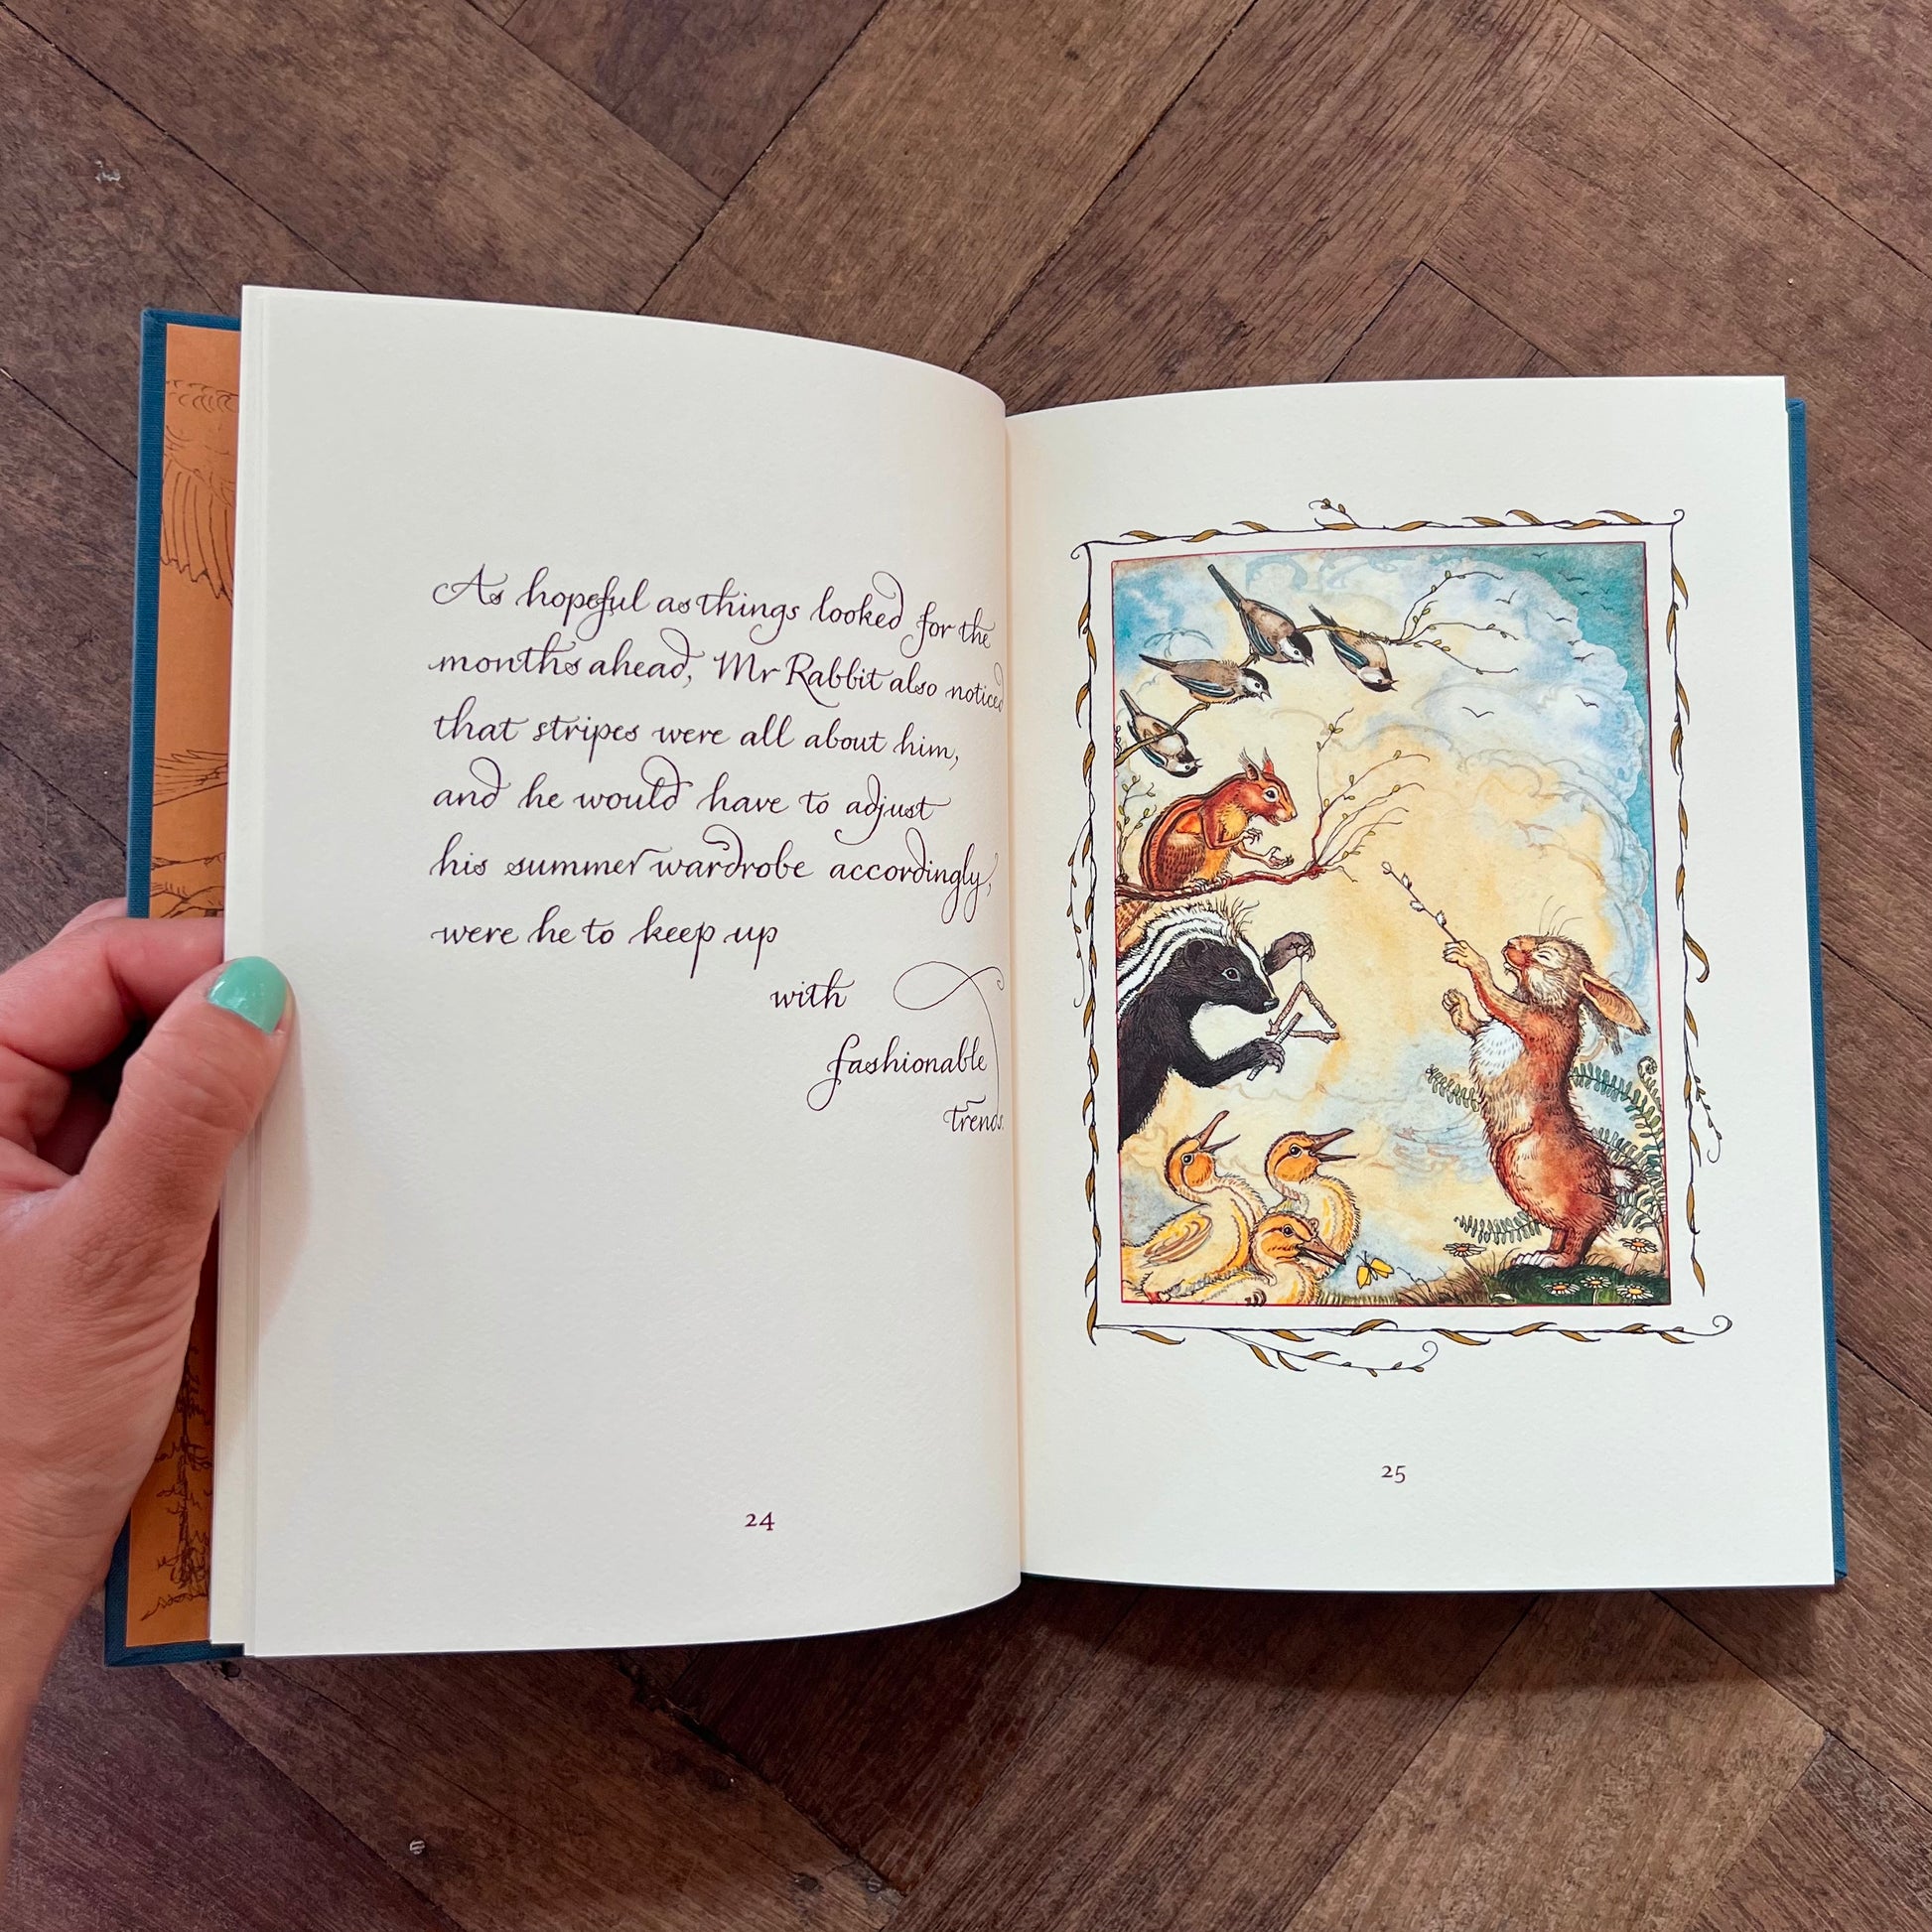 As hopeful as things looked for the
months ahead, Mr Rabbit also noticed
that stripes were all about him,
and he would have to adjust
his summer wardrobe accordingly,
were he to keep up
with
fashionable
trends.
24
25